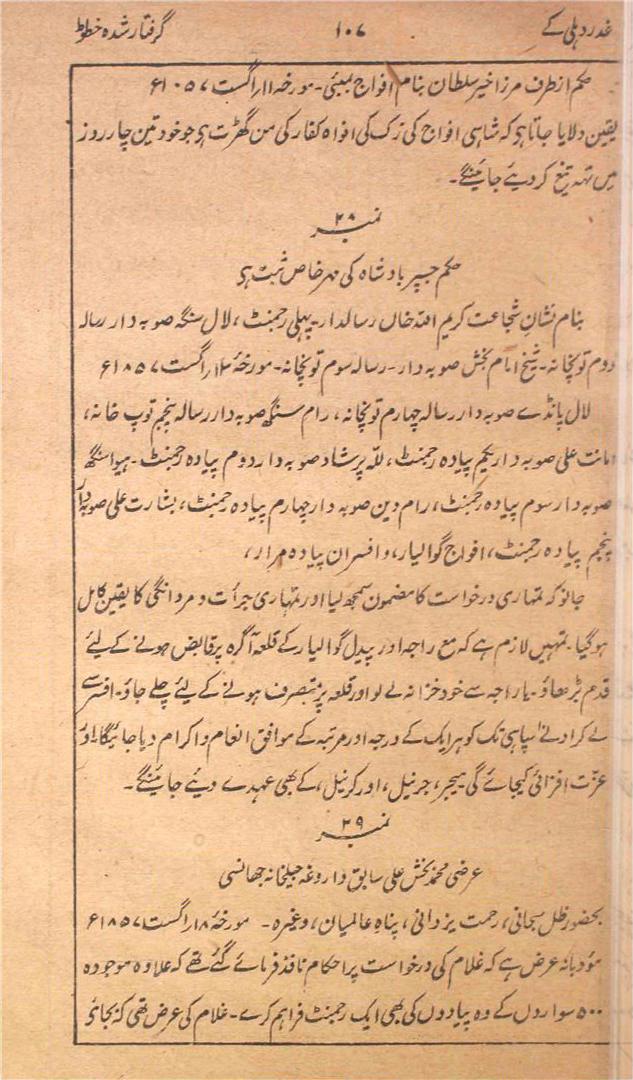 غدر دہلی کے ۱۰۷ گرفتار شدہ خطوط
حکم از طرف مرزا خیر سلطان بنام افواج بمبئی۔ مورخہ ۱۱ اگست ۱۰۵۷ء
یقین دلایا جاتا ہے کہ شاہی افواج کی زک کی افواہ کفار کی من گھڑت ہے جو خود تین چار روز
میں تہہ تیغ کر دیئے جائینگے۔
نمبر ۲۸
حکم جسپر بادشاہ کی مہر خاص ثبت ہے
بنام نشانِ شجاعت کریم اللہ خاں رسالدار۔ پہلی رجمنٹ، لال سنگہ صوبہ دار رسالہ
دوم توپخانہ۔ شیخ امام بخش صوبہ دار۔ رسالہ سوم توپخانہ۔ مورخہ اگست ۱۸۵۷ء
لال پانڈے صوبہ دار رسالہ چہارم توپخانہ، رام سنگھ صوبہ دار رسالہ پنجم توپ خانہ،
امانت علی صوبہ دار یکم پیادہ رجمنٹ، للہ پرشاد صوبہ دار دوم پیادہ رجمنٹ۔ ہیوا سنگھ
صوبہ دار سوم پیادہ رجمنٹ، رام دین صوبہ دار چہارم پیادہ رجمنٹ، بشارت علی صوبہ دار
پنجم پیادہ رجمنٹ، افواج گوالیار، و افسران پیادہ
جانو کہ تمہاری درخواست کا مضمون سمجھ لیا اور تمہاری جرأت و مردانگی کا یقین کامل
ہوگیا۔ تمہیں لازم ہے کہ مع راجہ اور پیدل گوالیار کے قلعہ آگرہ پر قابض ہونے کے لیئے
قدم بڑھاؤ۔ یا راجہ سے خود خزانہ لے لو اور قلعہ پر متصرف ہونے کے لیئے چلے جاؤ۔ افسر سے
لے کر ادنےٰ سپاہی تک کو ہر ایک کے درجہ اور مرتبہ کے موافق انعام و اکرام دیا جائیگا اور
عزت افزائی کیجائے گی میجر، جرنیل، اور کرنیل، کے بھی عہدے دیئے جائینگے۔
نمبر ۲۹
عرضی محمد بخش علی سابق داروغہ جیلخانہ جھانسی
بحضور ظل سبحانی، رحمت یزدانی، پناہ عالمیان، وغیرہ۔ مورخہ ۱۸ اگست ۱۸۵۷ء
مؤدبانہ عرض ہے کہ غلام کی درخواست پر احکام نافذ فرمائے گئے تھے کہ علاوہ موجودہ
۵۰۰ سواروں کے وہ پیادوں کی بھی ایک رجمنٹ فراہم کرے۔ غلام کی عرض تھی کہ بجائے